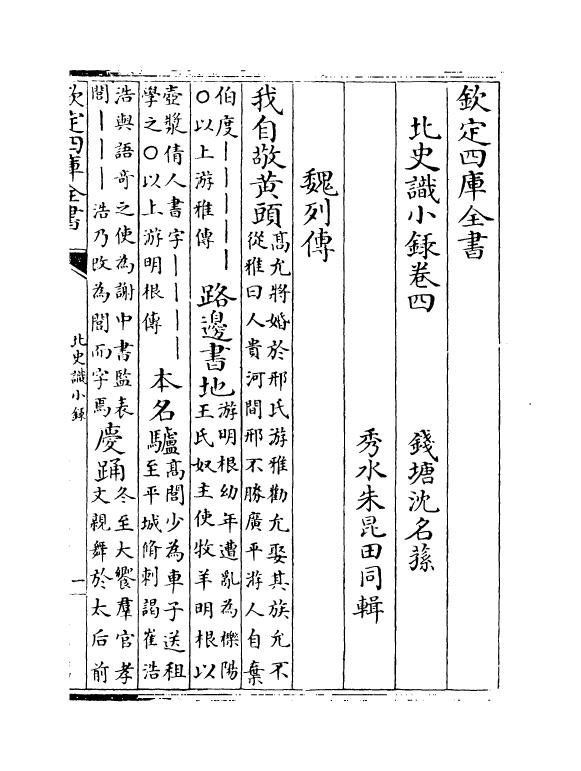 欽定四庫全書
北史識小録卷四　錢塘沈名蓀
秀水朱昆田同輯
魏列傳
我自敬黄頭
高允將婚於邢氏游雅勸允娶其族允不
從雅曰人貴河間邢不勝廣平游人自棄
伯度｜｜｜｜｜
○以上游雅傳
路邊書地
游明根幼年遭亂為櫟陽
王氏奴主使牧羊明根以
壺漿倩人書字｜｜｜｜
學之○以上游明根傳
本名驢
高閭少為車子送租
至平城脩刺謁崔浩
浩與語奇之使為謝中書監表
閭｜｜｜浩乃改為閭而字焉
慶踊
冬至大饗羣官孝
文親舞於太后前
欽定四庫全書
北史識小録
一